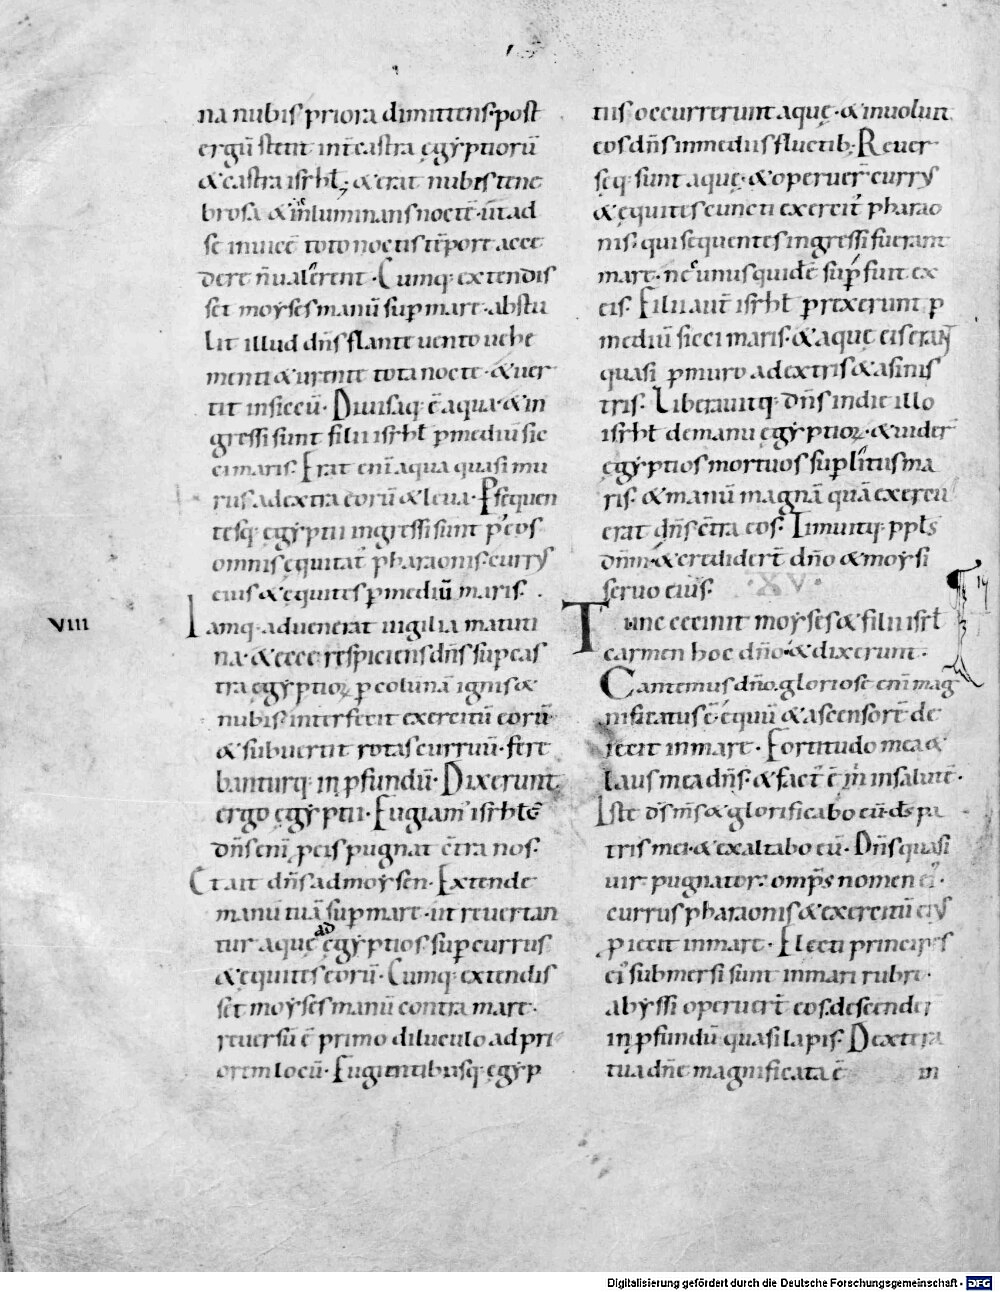 na nubis priora dimittens· post
ergū stetit int̄ castra ęgyptiorū
& castra isrhl̄; & erat nubis tene
brosa & inluminans noctē· ut ad
se inuicē toto noctis tēpore acce
dere n̄ ualerent· Cumq· extendis
set moyses manū sup mare· abstu
lit illud dn̄s flante uento uehe
menti & urente tota nocte· & uer
tit in siccū· Diuisaq· ē aqua· & in
gressi sunt filii isrhl̄ p mediū sic
ci maris. Erat eni aqua quasi mu
rus ad extra eorū & leua· Psequen
tesq· ęgyptii ingressi sunt p̄ eos
omnis equitat᾽ pharaonis· currꝰ
eius & equites p mediū maris.
VIII
Iamq· aduenerat uigilia matuti
na· & ecce respiciens dn̄s sup cas
tra ęgyptioꝝ p colunā ignis &
nubis· interfecit exercitū eorū·
& subuertit rotas curruū· fere
banturq· in pfundū· Dixerunt
ergo ęgyptii· Fugiam᾽ isrhlē
dn̄s eni p eis pugnat c̄tra nos.
Et ait dn̄s ad moysen· Extende
manū tuā sup mare· ut reuertan
tur aquę ad ęgyptios sup currus
& equites eorū· Cumq· extendis
set moyses manū contra mare·
reuersū ē primo diluculo ad pri
orem locū· Fugientibusq· ęgyp
tiis occurrerunt aquę· & inuoluit
eos dn̄s in mediis fluctib;· Reuer
sęq· sunt aquę· & operuer̄ currꝰ
& equites cuncti exercit᾽ pharao
nis· qui sequentes ingressi fuerant
mare· nec unus quidē supfuit ex
eis. Filii aut̄ isrhl̄ prexerunt p
mediū sicci maris· & aquę eis erant
quasi p muro a dextris & a sinis
tris. Liberauitq· dn̄s in die illo
isrhl̄ de manu ęgyptioꝝ· & uider̄
ęgyptios mortuos sup litus ma
ris· & manū magnā quā exercu
erat dn̄s c̄tra eos. Timuitq· ppls̄
dnm̄· & credidert̄ dn̄o & moysi
seruo eius. ·XV·
Tunc cecinit moyses & filii isrl̄
carmen hoc dn̄o· & dixerunt·
Cantemus dn̄o· gloriose eni mag
nificatus ē· equū & ascensorē de
iecit in mare· Fortitudo mea &
laus mea dn̄s· & fact᾽ ē m in salutē·
Iste ds̄ ms̄ & glorificabo eū· ds̄ pa
tris mei· & exaltabo eū· Dn̄s quasi
uir pugnator· omps̄ nomen ei᾽·
currus pharaonis & exercitū eiꝰ
piecit in mare· Electi principes
ei᾽ submersi sunt in mari rubro·
abyssi operuert̄ eos· descender̄
in pfundū quasi lapis· Dextera
tua dn̄e magnificata ē in
Digitalisierung gefördert durch die Deutsche Forschungsgemeinschaft - DFG